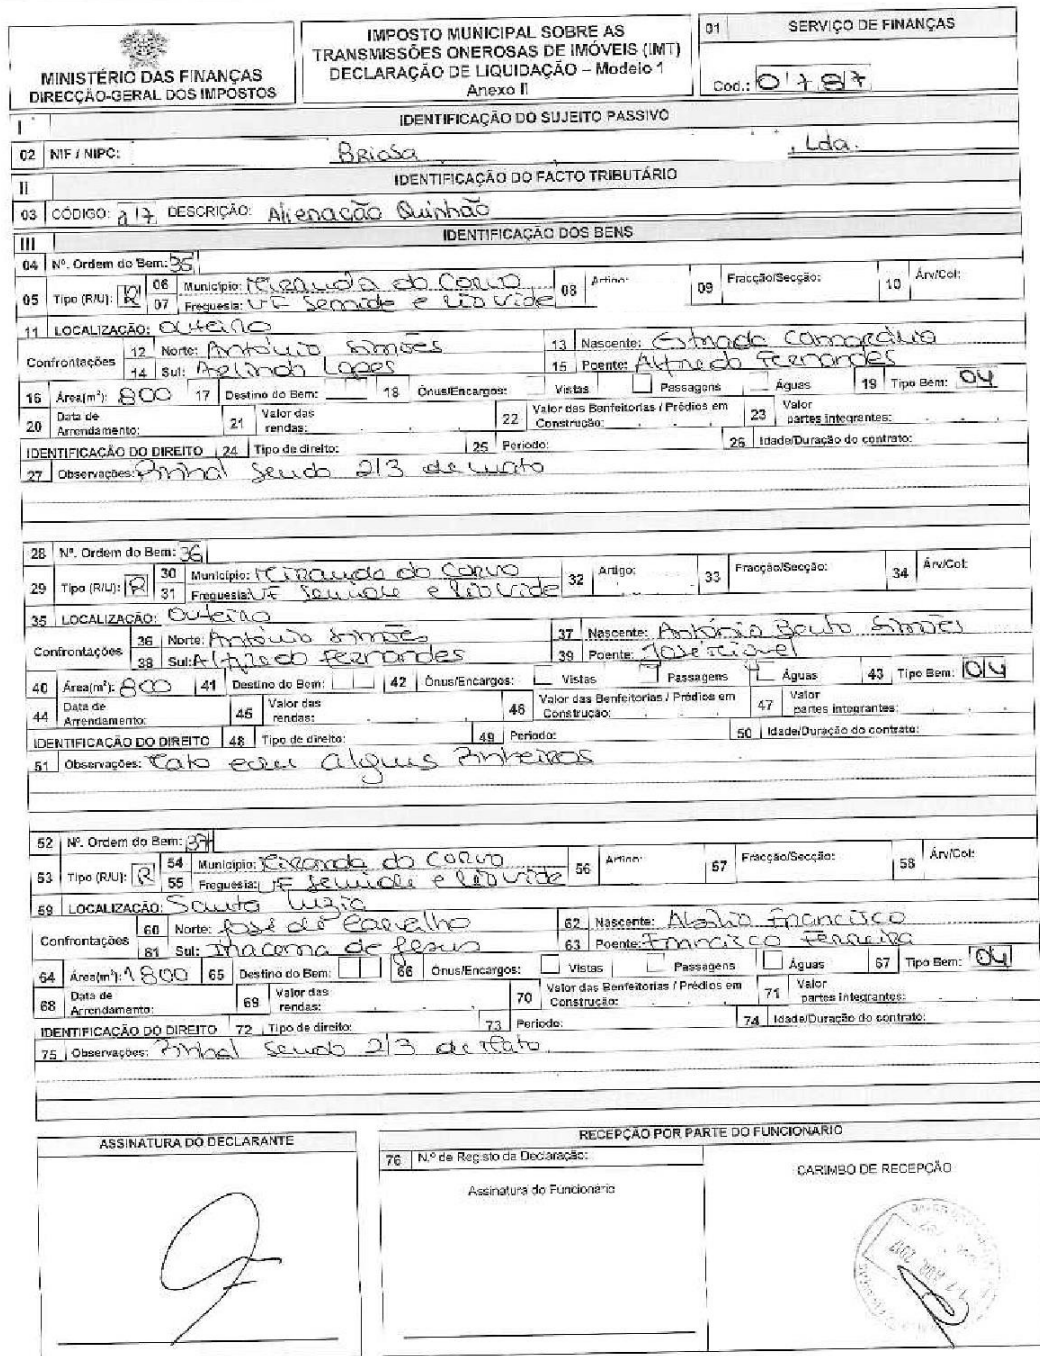 MINISTÉRIO DAS FINANÇAS
DIRECÇÃO-GERAL DOS IMPOSTOS
IMPOSTO MUNICIPAL SOBRE AS
TRANSMISSÕES ONEROSAS DE IMÓVEIS (IMT)
DECLARAÇÃO DE LIQUIDAÇÃO – Modelo 1
Anexo II
01 SERVIÇO DE FINANÇAS
Cod.: 0787
I IDENTIFICAÇÃO DO SUJEITO PASSIVO
02 NIF / NIPC: Briosa , Lda.
II IDENTIFICAÇÃO DO FACTO TRIBUTÁRIO
03 CÓDIGO: 217 DESCRIÇÃO: Alienação Quinhão
III IDENTIFICAÇÃO DOS BENS
04 Nº. Ordem do Bem: 35
05 Tipo (R/U): R 06 Município: Miranda do Corvo 08 Artigo: 09 Fracção/Secção: 10 Árv/Col:
07 Freguesia: UF Semide e Rio Vide
11 LOCALIZAÇÃO: Outeiro
Confrontações 12 Norte: António Simões 13 Nascente: Estrada Camarária
14 Sul: Arlindo Lopes 15 Poente: Alfredo Fernandes
16 Área(m²): 800 17 Destino do Bem: 18 Ónus/Encargos: Vistas Passagens Águas 19 Tipo Bem: 04
20 Data de Arrendamento: 21 Valor das rendas: 22 Valor das Benfeitorias / Prédios em Construção: 23 Valor partes integrantes:
IDENTIFICAÇÃO DO DIREITO 24 Tipo de direito: 25 Periodo: 26 Idade/Duração do contrato:
27 Observações: Pinhal sendo 2/3 de mato
28 Nº. Ordem do Bem: 36
29 Tipo (R/U): R 30 Município: Miranda do Corvo 32 Artigo: 33 Fracção/Secção: 34 Árv/Col:
31 Freguesia: UF Semide e Rio Vide
35 LOCALIZAÇÃO: Outeiro
Confrontações 36 Norte: António Simões 37 Nascente: António Bento Simões
38 Sul: Alfredo Fernandes 39 Poente: José
40 Área(m²): 800 41 Destino do Bem: 42 Ónus/Encargos: Vistas Passagens Águas 43 Tipo Bem: 04
44 Data de Arrendamento: 45 Valor das rendas: 46 Valor das Benfeitorias / Prédios em Construção: 47 Valor partes integrantes:
IDENTIFICAÇÃO DO DIREITO 48 Tipo de direito: 49 Periodo: 50 Idade/Duração do contrato:
51 Observações: Mato com alguns Pinheiros
52 Nº. Ordem do Bem: 37
53 Tipo (R/U): R 54 Município: Miranda do Corvo 56 Artigo: 57 Fracção/Secção: 58 Árv/Col:
55 Freguesia: UF Semide e Rio Vide
59 LOCALIZAÇÃO: Santa Luzia
Confrontações 60 Norte: José de Carvalho 62 Nascente: Abílio Francisco
61 Sul: Iracema de Jesus 63 Poente: Francisco Ferreira
64 Área(m²): 1800 65 Destino do Bem: 66 Ónus/Encargos: Vistas Passagens Águas 67 Tipo Bem: 04
68 Data de Arrendamento: 69 Valor das rendas: 70 Valor das Benfeitorias / Prédios em Construção: 71 Valor partes integrantes:
IDENTIFICAÇÃO DO DIREITO 72 Tipo de direito: 73 Periodo: 74 Idade/Duração do contrato:
75 Observações: Pinhal sendo 2/3 de Mato
ASSINATURA DO DECLARANTE
RECEPÇÃO POR PARTE DO FUNCIONARIO
76 N.º de Registo da Declaração:
Assinatura do Funcionário
CARIMBO DE RECEPÇÃO